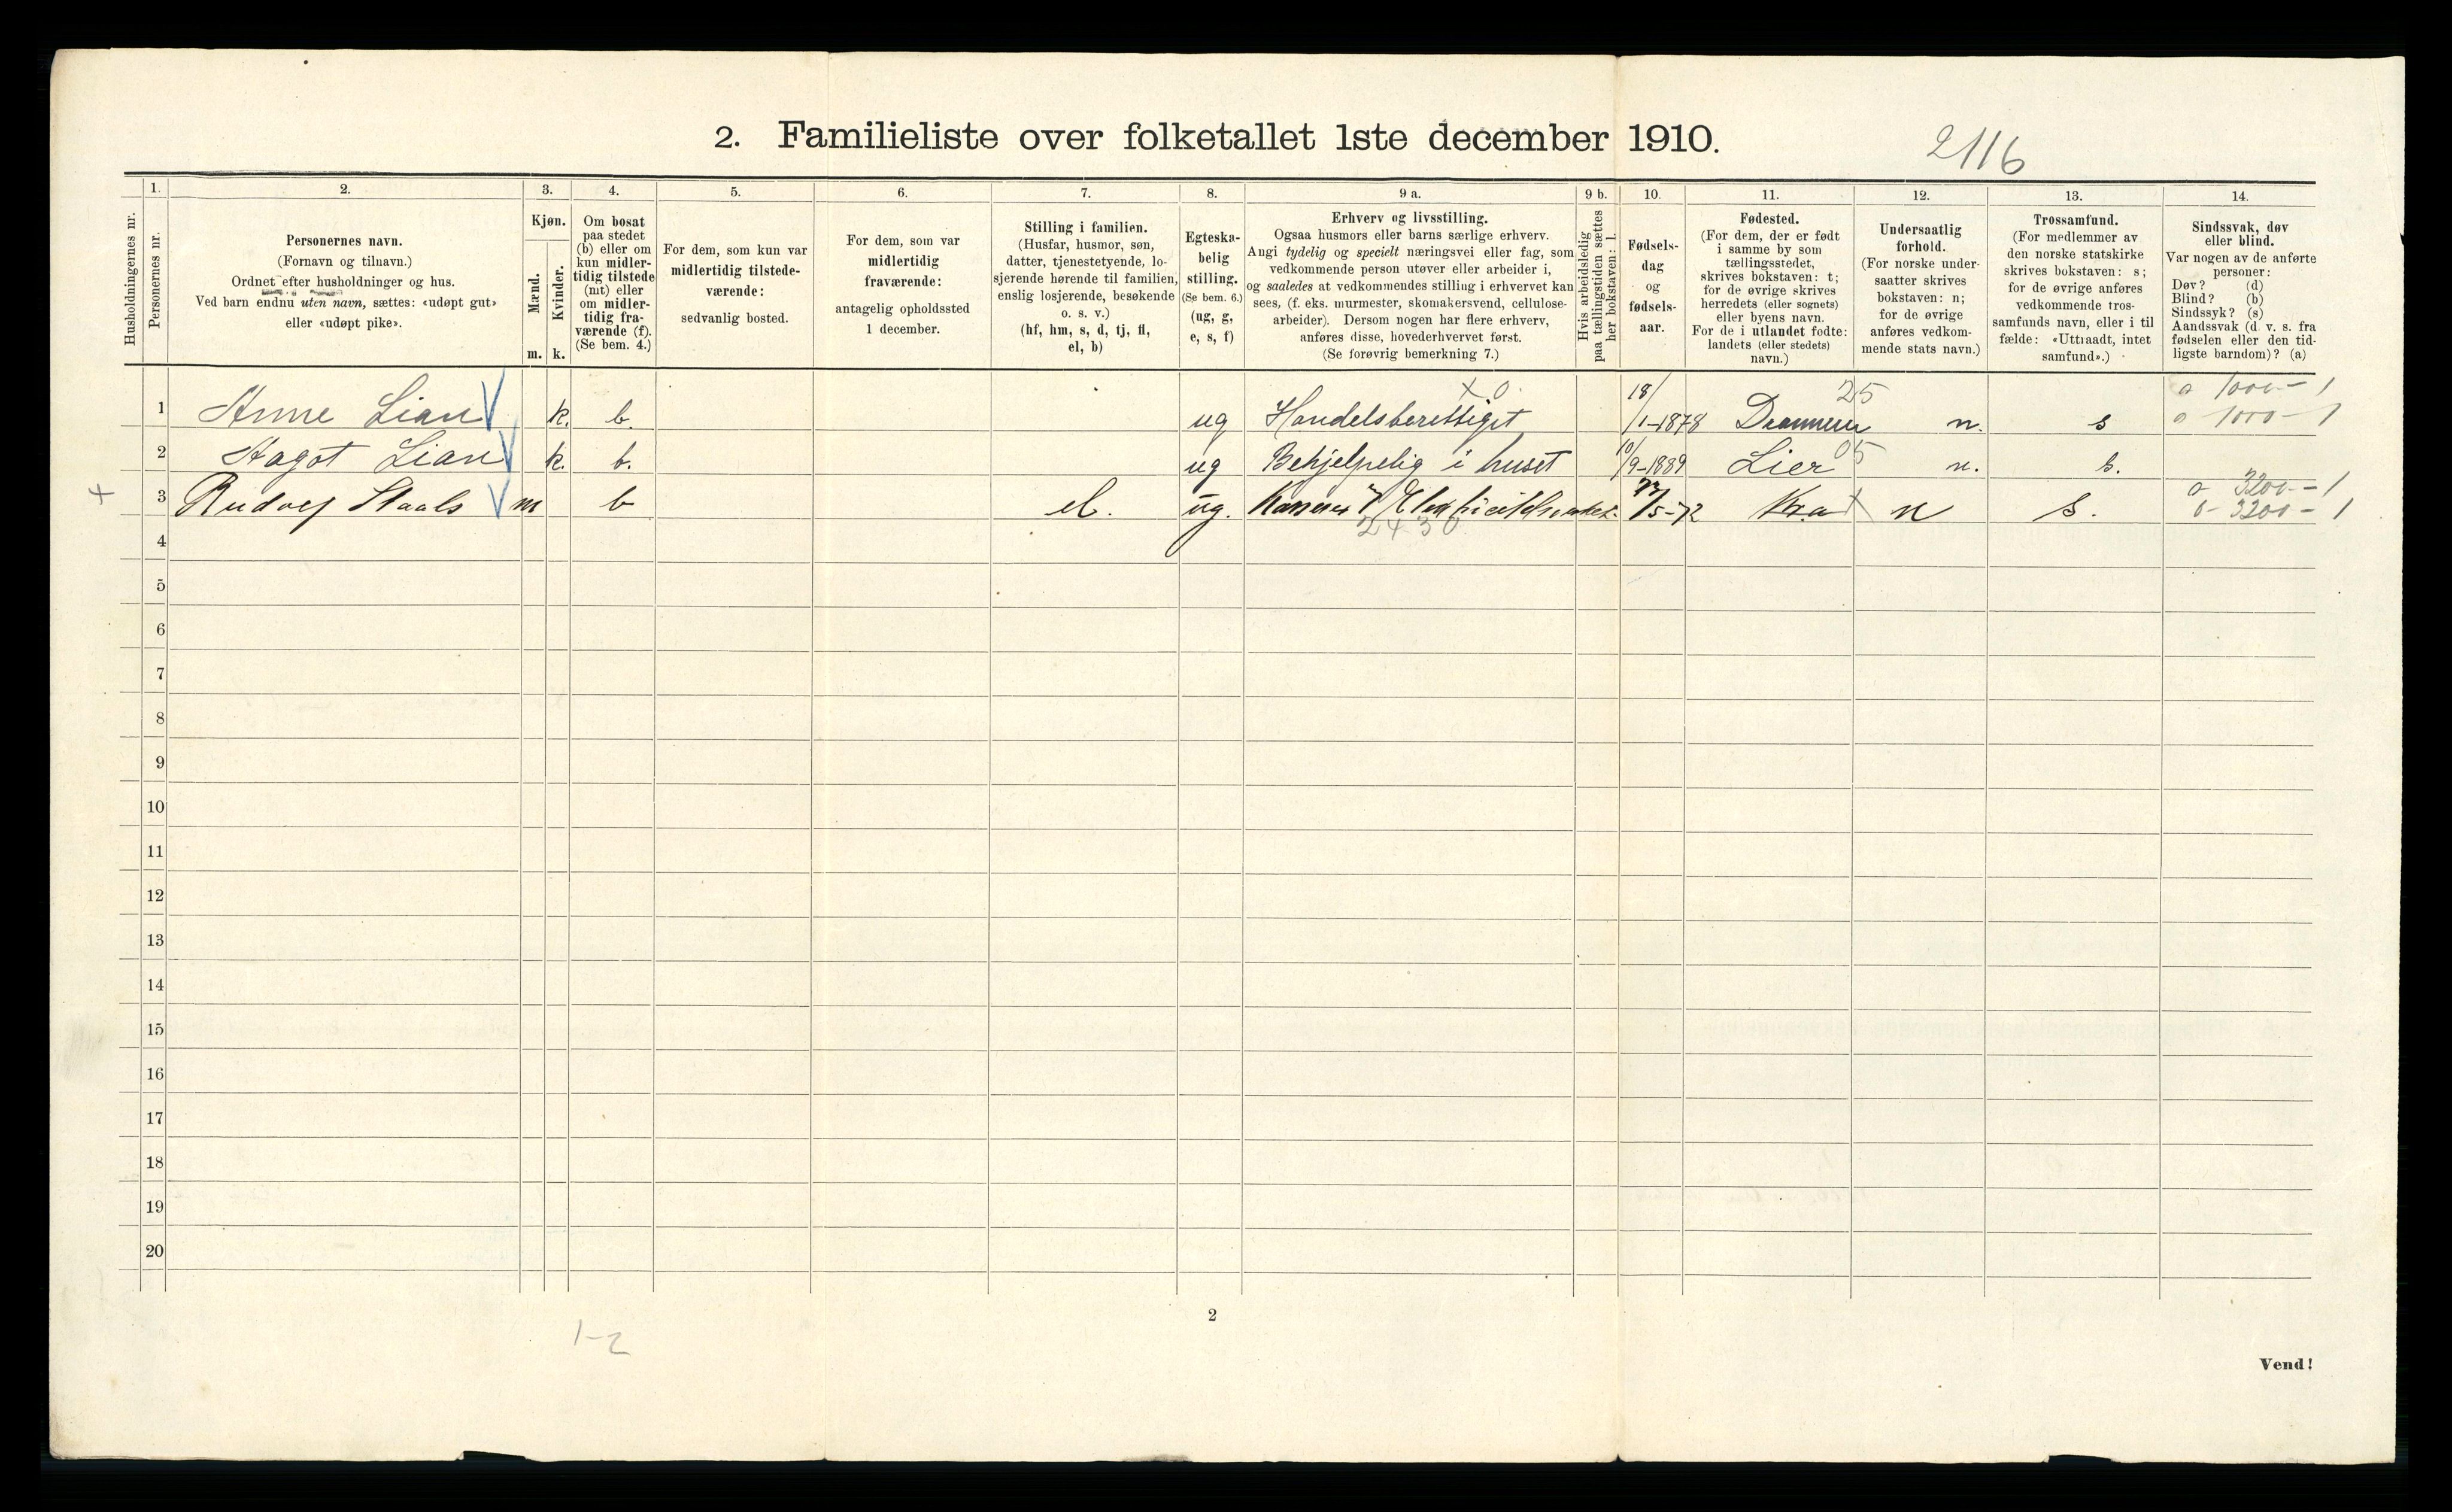 2. Familieliste over folketallet 1ste december 1910.
2116
1. 2. 3. 4. 5. 6. 7. 8. 9 a. 9 b. 10. 11. 12. 13. 14.
Husholdningernes nr.
Personernes nr.
Personernes navn.
(Fornavn og tilnavn.)
Ordnet efter husholdninger og hus.
Ved barn endnu uten navn, sættes: «udøpt gut»
eller «udøpt pike».
Kjøn.
Mænd.
Kvinder.
m. k.
Om bosat
paa stedet
(b) eller om
kun midler-
tidig tilstede
(mt) eller
om midler-
tidig fra-
værende (f).
(Se bem. 4.)
For dem, som kun var
midlertidig tilstede-
værende:
sedvanlig bosted.
For dem, som var
midlertidig
fraværende:
antagelig opholdssted
1 december.
Stilling i familien.
(Husfar, husmor, søn,
datter, tjenestetyende, lo-
sjerende hørende til familien,
enslig losjerende, besøkende
o. s. v.)
(hf, hm, s, d, tj, fl,
el, b)
Egteska-
belig
stilling.
(Se bem. 6.)
(ug, g,
e, s, f)
Erhverv og livsstilling.
Ogsaa husmors eller barns særlige erhverv.
Angi tydelig og specielt næringsvei eller fag, som
vedkommende person utøver eller arbeider i,
og saaledes at vedkommendes stilling i erhvervet kan
sees, (f. eks. murmester, skomakersvend, cellulose-
arbeider). Dersom nogen har flere erhverv,
anføres disse, hovederhvervet først.
(Se forøvrig bemerkning 7.)
Hvis arbeidsledig
paa tællingstiden sættes
her bokstaven: l.
Fødsels-
dag
og
fødsels-
aar.
Fødested.
(For dem, der er født
i samme by som
tællingsstedet,
skrives bokstaven: t;
for de øvrige skrives
herredets (eller sognets)
eller byens navn.
For de i utlandet fødte:
landets (eller stedets)
navn.)
Undersaatlig
forhold.
(For norske under-
saatter skrives
bokstaven: n;
for de øvrige
anføres vedkom-
mende stats navn.)
Trossamfund.
(For medlemmer av
den norske statskirke
skrives bokstaven: s;
for de øvrige anføres
vedkommende tros-
samfunds navn, eller i til
fælde: «Uttraadt, intet
samfund».)
Sindssvak, døv
eller blind.
Var nogen av de anførte
personer:
Døv? (d)
Blind? (b)
Sindssyk? (s)
Aandssvak (d. v. s. fra
fødselen eller den tid-
ligste barndom)? (a)
x 0 18/ 25 0 1000 - 1
1 Anne Lian k. b. ug Handelsberettiget /1-1878 Drammen n. s 0 1000 - 1
2 Hagot Lian k. b. ug Behjelpelig i huset 10/9-1889 Lier 05 n. s. 0 3200 - 1
3 Rudolf Staals m b el. ug. 27/5-72 Kra n s. 0 - 3200 - 1
2430
4
5
6
7
8
9
10
11
12
13
14
15
16
17
18
19
20
2
1-2
Vend!